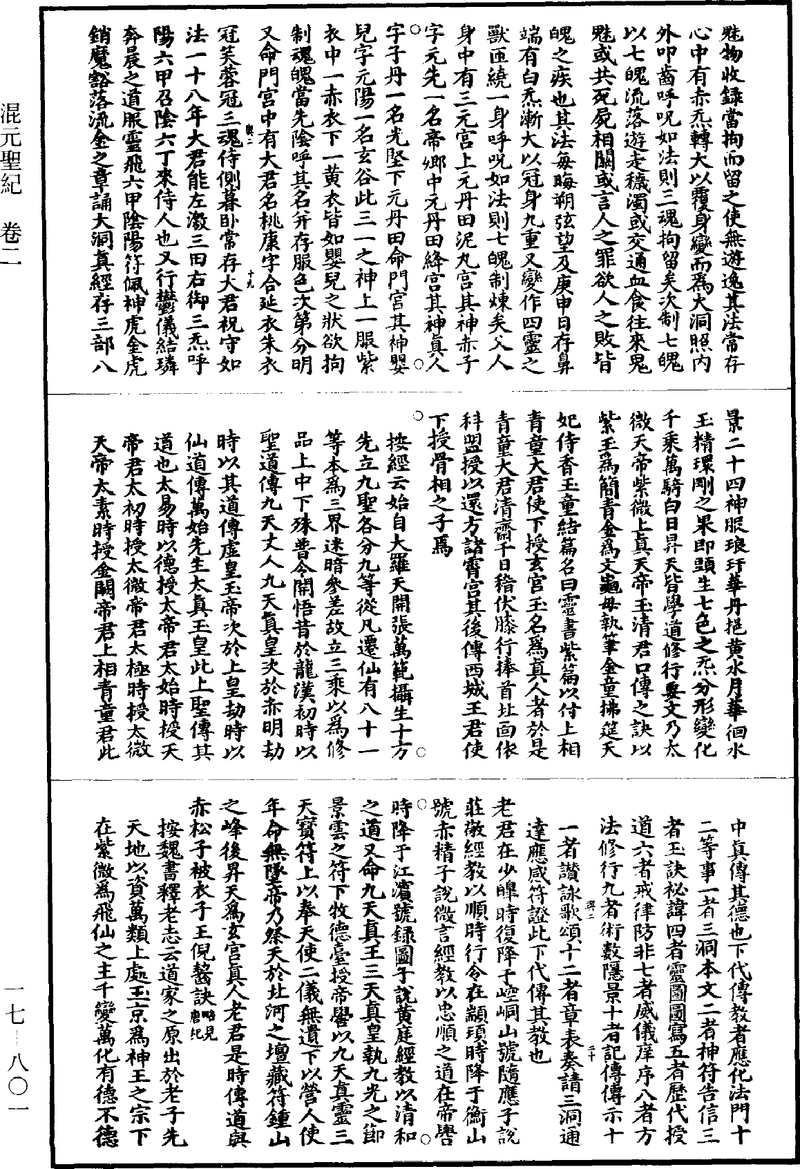 混元聖紀　卷二
一七—八〇一
魅物收録當拘而留之使無遊逸其法常存
心中有赤炁轉大以覆身變而爲大洞照内
外叩齒呼呪如法則三魂拘留矣次制七魄
以七魄流落遊走穢濁或交通血食往來鬼
魅或共死屍相關或言人之罪欲人之敗皆
魄之疾也其法每晦朔弦望及庚申日存鼻
端有白炁漸大以冠身九重又變作四靈之
獸匝繞一身呼呪如法則七魄制煉矣又人
身中有三元宮上元丹田泥丸宮其神赤子
字元先一名帝卿中元丹田絳宮其神真人
字子丹一名光堅下元丹田命門宮其神嬰
兒字元陽一名玄谷此三一之神上一服紫
衣中一赤衣下一黄衣皆如嬰兒之狀欲拘
制魂魄當先陰呼其名并存服色次第分明
又命門宮中有大君名桃康字合延衣朱衣
冠芙蓉冠三魂侍側暮卧常存大君祝守如
法一十八年大君能左激三田右御三炁呼
陽六甲召陰六丁來侍人也又行鬱儀結璘
奔晨之道服靈飛六甲陰陽符佩神虎金虎
銷魔豁落流金之章誦大洞真經存三部八
景二十四神服琅玕華丹挹黄水月華徊水
玉精環剛之果即頭生七色之炁分形變化
千乘萬騎白日昇天皆學道修行要文乃太
微天帝紫微上真天帝玉清君口傳之訣以
紫玉爲簡青金爲文龜母執筆金童拂筵天
妃侍香玉童結篇名曰靈書紫篇以付上相
青童大君使下授玄宮玉名爲真人者於是
青童大君清齋千日稽伏膝行捧首北面依
科盟授以還方諸霄宮其後傳西城王君使
下授骨相之子焉
按經云始自大羅天開張萬範攝生十方
先立九聖各分九等從凡遷仙有八十一
等本爲三界迷暗參差故立三乘以爲修
品上中下殊普令開悟昔於龍漢初時以
聖道傳九天丈人九天真皇次於赤明劫
時以其道傳虚皇玉帝次於上皇劫時以
仙道傳萬始先生太真玉皇此上聖傳其
道也太易時以德授太帝君太始時授天
帝君太初時授太微帝君太極時授太微
天帝太素時授金闕帝君上相青童君此
中真傳其德也下代傳教者應化法門十
二等事一者三洞本文二者神符告信三
者玉訣祕諱四者靈圖圖寫五者歷代授
道六者戒律防非七者威儀庠序八者方
法修行九者術數隱景十者記傳傳示十
一者讚詠歌頌十二者章表奏請三洞通
達應感符證此下代傳其教也
老君在少皥時復降于崆峒山號隨應子說
莊敬經教以順時行令在顓頊時降于衡山
號赤精子說微言經教以忠順之道在帝嚳
時降于江濱號録圖子說黄庭經教以清和
之道又命九天真王三天真皇執九光之節
景雲之符下牧德臺授帝嚳以九天真靈三
天寳符上以奉天使二儀無遺下以營人使
年命無墜帝乃祭天於北河之壇藏符鍾山
之峰後昇天爲玄宮真人老君是時傳道與
赤松子被衣子王倪齧訣略見唐紀
按魏書釋老志云道家之原出於老子先
天地以資萬類上處玉京爲神王之宗下
在紫微爲飛仙之主千變萬化有德不德